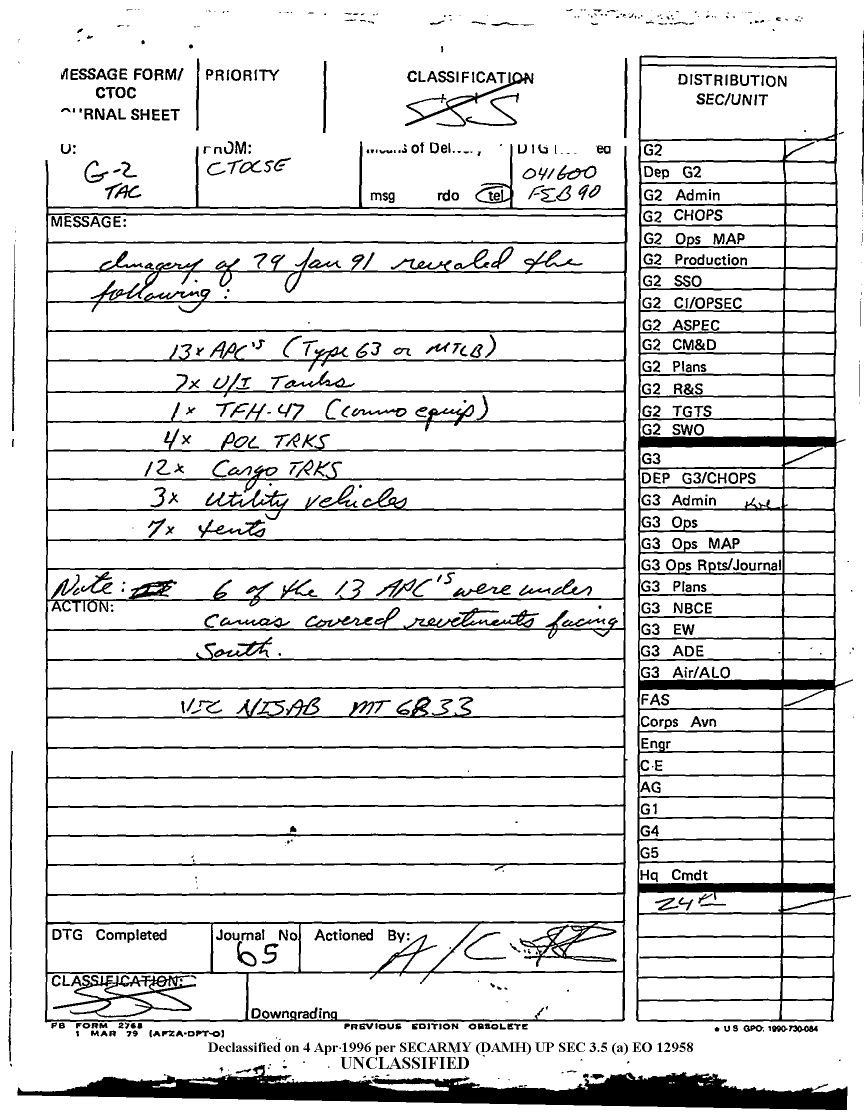 MESSAGE FORM/
CTOC
JOURNAL SHEET
PRIORITY
CLASSIFICATION
SSS
TO:
G-2
TAC
FROM:
CTOCSE
Means of Delivery
msg rdo tel
DTG
041600
FEB 90
MESSAGE:
Imagery of 29 Jan 91 revealed the
following:
13x APC's (Type 63 or MTLB)
7x U/I Tanks
1x TFH-47 (commo equip)
4x POL TRKS
12x Cargo TRKS
3x Utility vehicles
7x tents
Note: 6 of the 13 APC's were under
ACTION:
camas covered revetments facing
South.
VIC NISAB MT 6833
DTG Completed
Journal No
65
Actioned By:
A/C
CLASSIFICATION:
SSS
Downgrading
FB FORM 2768
1 MAR 79 (AFZA-DPT-O)
PREVIOUS EDITION OBSOLETE
DISTRIBUTION
SEC/UNIT
G2
Dep G2
G2 Admin
G2 CHOPS
G2 Ops MAP
G2 Production
G2 SSO
G2 CI/OPSEC
G2 ASPEC
G2 CM&D
G2 Plans
G2 R&S
G2 TGTS
G2 SWO
G3
DEP G3/CHOPS
G3 Admin
G3 Ops
G3 Ops MAP
G3 Ops Rpts/Journal
G3 Plans
G3 NBCE
G3 EW
G3 ADE
G3 Air/ALO
FAS
Corps Avn
Engr
C-E
AG
G1
G4
G5
Hq Cmdt
24th
U S GPO: 1990-730-084
Declassified on 4 Apr 1996 per SECARMY (DAMH) UP SEC 3.5 (a) EO 12958
UNCLASSIFIED